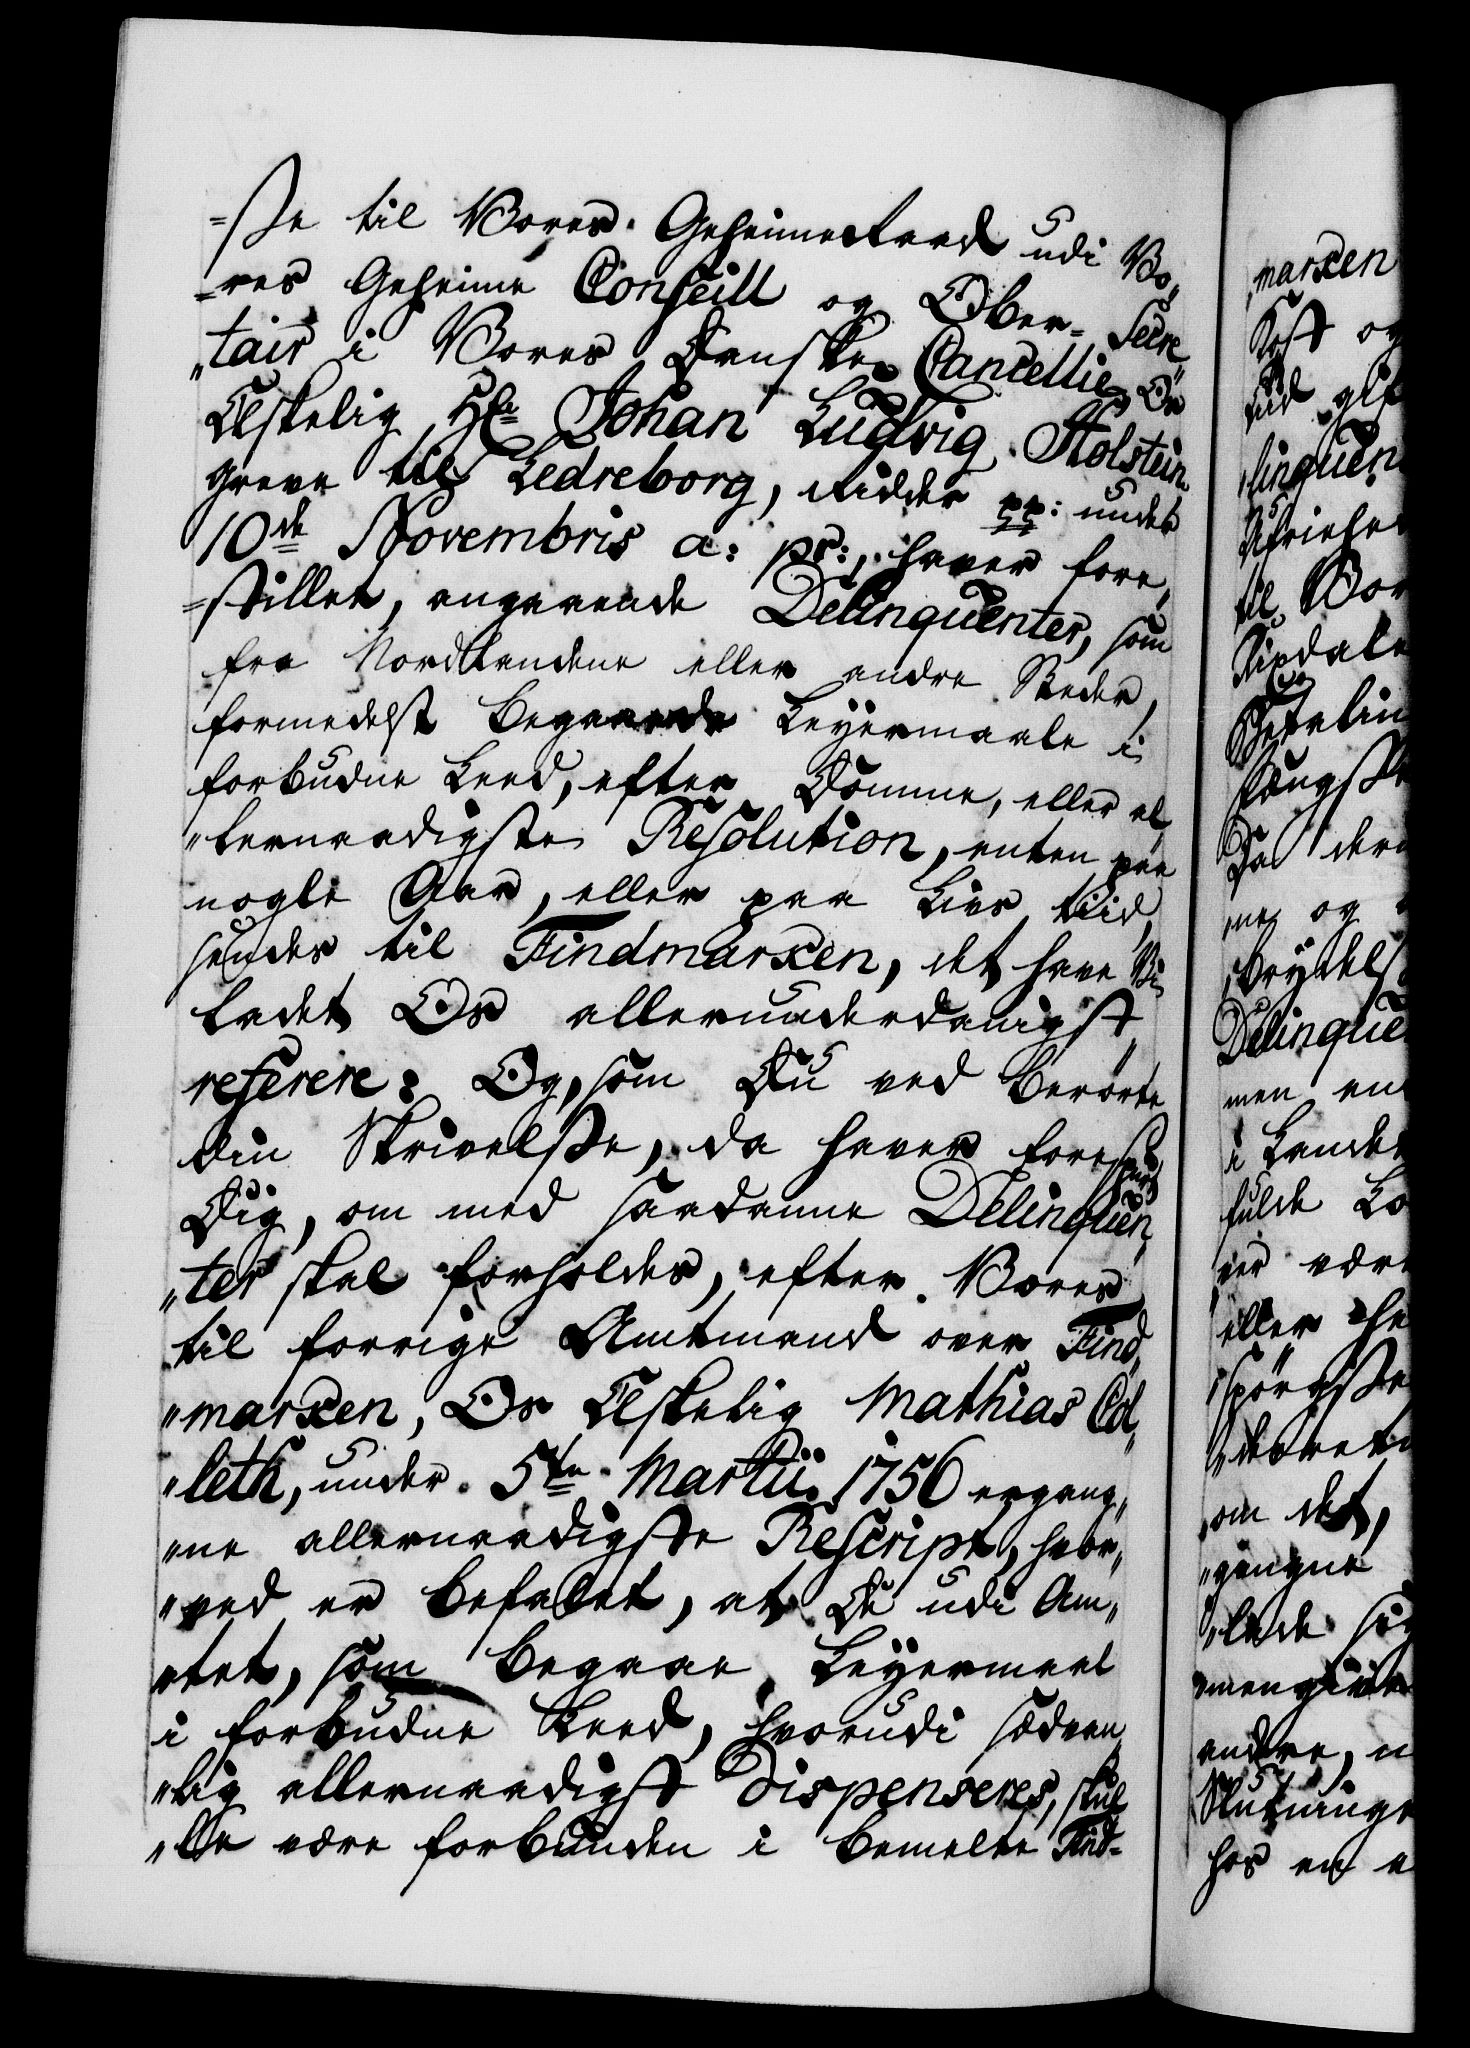 =sße til Vores Geheimeraad udi Vo„
=res Geheime Conseill og Ober-Secre„
„tair i Vores Danske Cancellie, Os
Elskelig Hr Johan Ludvig Holstein
Greve til Ledreborg, Ridder pp: under
10de Novembris a: pr:, haver fore„
=stillet, angaaende Delinquenter, som
fra Nordlandene eller andre Steder,
formedelst begaaede Leyermaale i
forbudne Leed, efter Domme, eller al„
„lernaadigste Resolution, enten paa
nogle Aar, eller paa Livs tiid,
sendes til Findmarken, det have Vi
ladet Os allerunderdanigst
referere: Og, som Du ved berørte
din Skrivelsße, da haver forespurt
Dig, om med saadanne Delinquen„
„ter skal forholdes, efter Vores
til forrige Amtmand over Find„
„marken, Os Elskelig Mathias Col„
„leth, under 5te Martii 1756 ergang„
„ne allernaadigste Rescript, hvor„
„ved er befalet, at De udi Am„
„tet, som begaae Leyermaal
i forbudne Leed, hvorudi sædvan„
„lig allernaadigst dispenseres, skul„
„le være forbunden i bemelte Find=
marken
Kost og
linquen
til Vor
Da der
me og
Delinque
men en
i Lande
fulde Lo
eller he
om det,
„gangne
„lade sig
andre, n
Slutninge
hos en